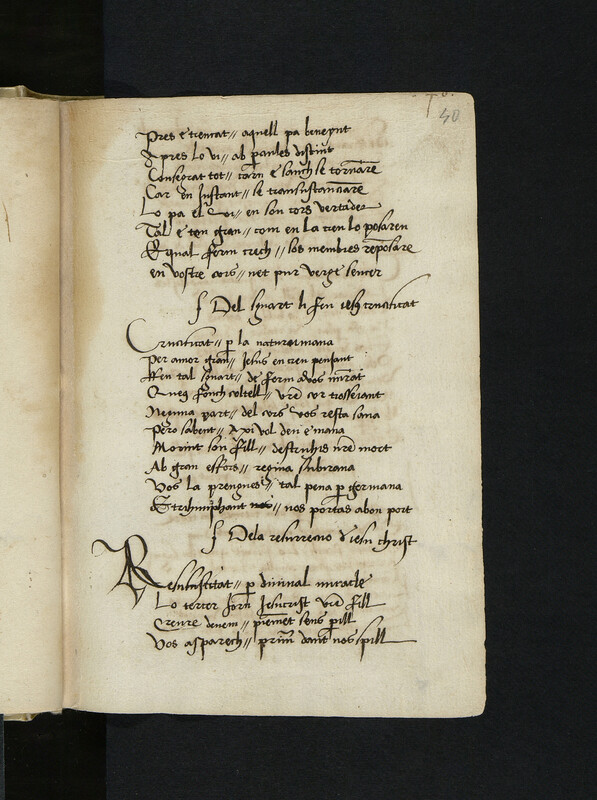 40
Pres e trencat // aquell pa beneynt
Apres lo vi // ab paules distint
Consegrat tot // carn e sanch se tornare
Car en Instant // se transustanciare
Lo pa el Vi // en son cors vertader
Tal e ten gran // com en la creu lo posaren
E qual ferm crech // sos membres reposare
en vostre cors // net pur verge sencer
Del sguart li feu iesus crucificat
Crucificat // p la natura vmana
Per amor gran // Jesus en creu penjant
Feu tal sguart // de ferm a vos mirat
Que fonch coltell // vre cor trosseiant
Neguna part // del cors vos resta sana
Pero sabent // axi vol deu e mana
Morint son fill // destruhis nre mort
Ab gran esfors // regina subirana
Vos la prengues // tal pena p germana
E trihumphant // nos portas a bon port
Dela resurreccio d iesu christ
Resussitat // p diuinal miracle
Lo tercer jorn Jesucrist vre fill
Creure deuem // piament sens pill
Vos asparech // prim dant nos spill